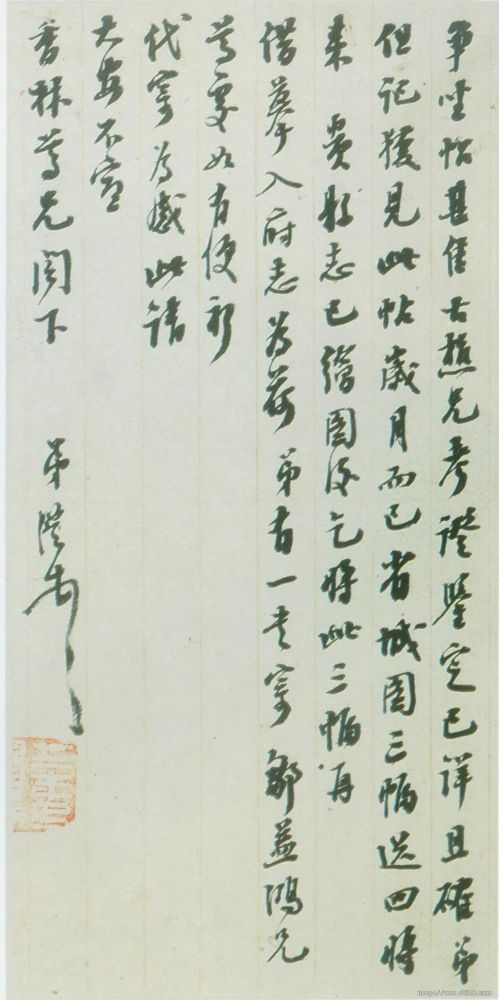 爭坐帖甚佳古樵兄考證鑒定已詳且確弟
但記獲見此帖歲月而已省城圖三幅送回將
來 貴縣志已繪圖後乞將此三幅再
借摹入府志為荷弟有一書寄 鄒益鴻兄
尊處如有便祈
代寄為感此請
大安不宣
香林尊兄閣下
弟澧頓首
http://www.9610.com